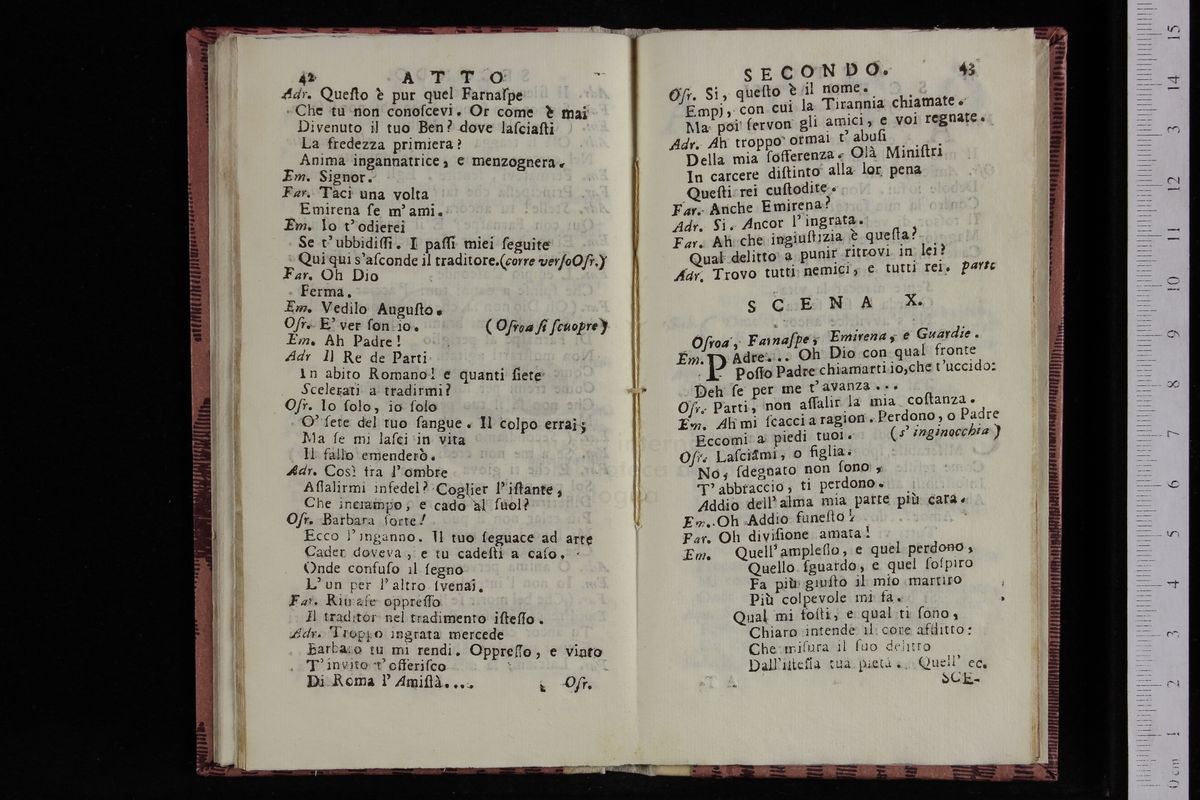 42 ATTO
Adr. Queſto è pur quel Farnaſpe
Che tu non conoſcevi. Or come è mai
Divenuto il tuo Ben? dove laſciaſti
La fredezza primiera?
Anima ingannatrice, e menzognera.
Em. Signor.
Far. Taci una volta
Emirena ſe m'ami.
Em. Io t'odierei
Se t'ubbidiſſi. I paſſi miei ſeguite
Qui qui s'aſconde il traditore.(corre verſo Oſr.)
Far. Oh Dio
Ferma.
Em. Vedilo Auguſto.
Oſr. E' ver ſon io. (Oſroa ſi ſcuopre)
Em. Ah Padre!
Adr Il Re de Parti
In abito Romano! e quanti ſiete
Scelerati a tradirmi?
Oſr. Io ſolo, io ſolo
O' ſete del tuo ſangue. Il colpo errai;
Ma ſe mi laſci in vita
Il fallo emenderò.
Adr. Così fra l'ombre
Aſſalirmi infedel? Coglier l'iſtante,
Che inciampo, e cado al ſuol?
Oſr. Barbara ſorte!
Ecco l'inganno. Il tuo ſeguace ad arte
Cader doveva, e tu cadeſti a caſo.
Onde confuſo il ſegno
L'un per l'altro ſvenai.
Far. Rimaſe oppreſſo
Il traditor nel tradimento iſteſſo.
Adr. Troppo ingrata mercede
Barbaro tu mi rendi. Oppreſſo, e vinto
T'invito t'offeriſco
Di Roma l'Amiſtà....
Oſr.
SECONDO. 43
Oſr. Si, queſto è il nome.
Empj, con cui la Tirannia chiamate.
Ma poi ſervon gli amici, e voi regnate.
Adr. Ah troppo ormai t'abuſi
Della mia ſofferenza. Olà Miniſtri
In carcere diſtinto alla lor pena
Queſti rei cuſtodite.
Far. Anche Emirena?
Adr. Si. Ancor l'ingrata.
Far. Ah che ingiuſtizia è queſta?
Qual delitto a punir ritrovi in lei?
Adr. Trovo tutti nemici, e tutti rei. parte
SCENA X.
Oſroa, Farnaſpe, Emirena, e Guardie.
Em. PAdre... Oh Dio con qual fronte
Poſſo Padre chiamarti io,che t'uccido:
Deh ſe per me t'avanza...
Oſr. Parti, non aſſalir la mia coſtanza.
Em. Ah mi ſcacci a ragion. Perdono, o Padre
Eccomi a piedi tuoi. (s'inginocchia)
Oſr. Laſciami, o figlia.
No, ſdegnato non ſono,
T'abbraccio, ti perdono.
Addio dell'alma mia parte più cara.
Em. Oh Addio funeſto!
Far. Oh diviſione amata!
Em. Quell'ampleſſo, e quel perdono,
Quello ſguardo, e quel ſoſpiro
Fa più giuſto il mio martiro
Più colpevole mi fa.
Qual mi foſti, e qual ti ſono,
Chiaro intende il core afflitto:
Che miſura il ſuo delitto
Dall'iſteſſa tua pietà. Quell' ec.
SCE-